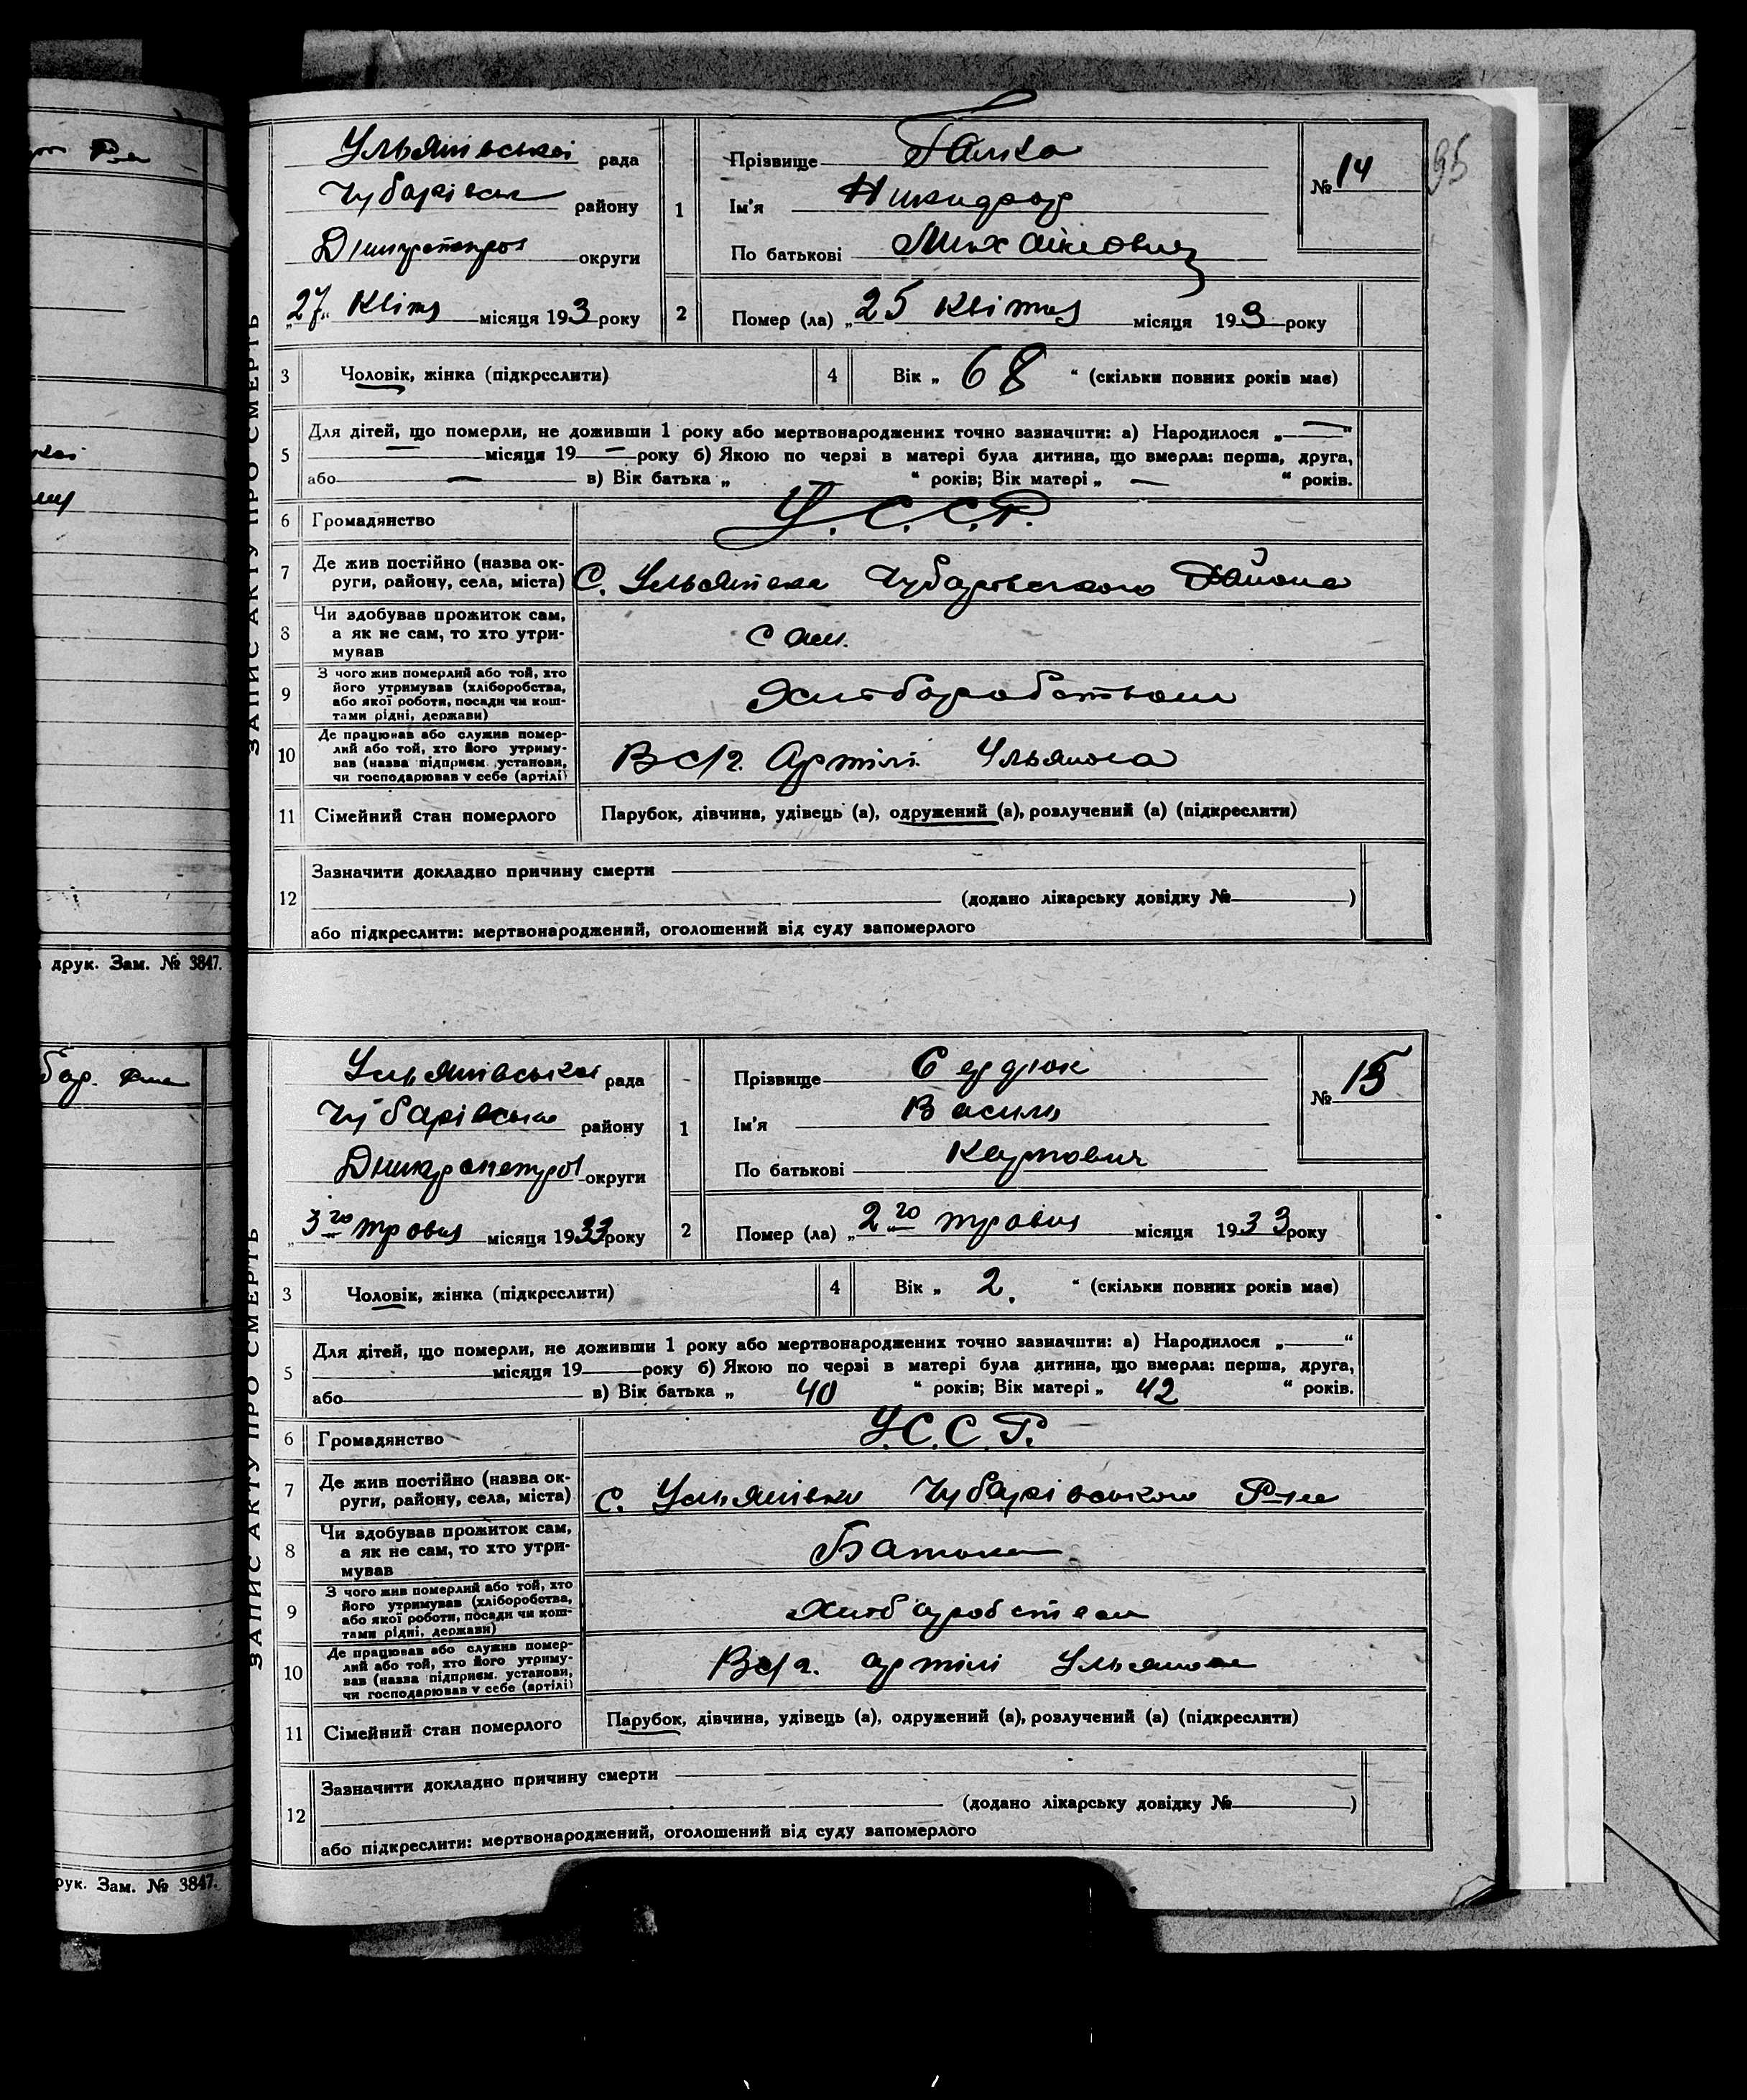 95
ЗАПИС АКТУ ПРО СМЕРТЬ
Ульянівської рада
Чубарівськ району
округи
„27“ Квітня місяця 193 року
1
Прізвище Галка
Ім'я
По батькові Михайлович
№ 14
2
Помер (ла) „25 Квітня місяця 193 року
3
Чоловік, жінка (підкреслити)
4
Вік „ 68 “ (скільки повних років має)
5
Для дітей, що померли, не доживши 1 року або мертвонароджених точно зазначити: а) Народилося „—“
— місяця 19 — року б) Якою по черзі в матері була дитина, що вмерла: перша, друга,
або — в) Вік батька „ — “ років; Вік матері „ — “ років.
6
Громадянство
У.С.С.Р.
7
Де жив постійно (назва ок-
руги, району, села, міста)
С. Ульянівка Чубарівського Району
8
Чи здобував прожиток сам,
а як не сам, то хто утри-
мував
сам.
9
З чого жив померлий або той, хто
його утримував (хліборобства,
або якої роботи, посади чи кош-
тами рідні, держави)
Хліборобством
10
Де працював або служив помер-
лий або той, хто його утриму-
вав (назва підприєм. установи,
чи господарював у себе (артілі)
В с/г. Артілі Ульянова
11
Сімейний стан померлого
Парубок, дівчина, удівець (а), одружений (а), розлучений (а) (підкреслити)
12
Зазначити докладно причину смерти
(додано лікарську довідку № )
або підкреслити: мертвонароджений, оголошений від суду запомерлого
друк. Зам. № 3847.
ЗАПИС АКТУ ПРО СМЕРТЬ
Ульянівської рада
Чубарівська району
Дніпропетров округи
„3го травня місяця 1933 року
1
Прізвище Сердюк
Ім'я Василь
По батькові Карпович
№ 15
2
Помер (ла) „2го травня місяця 1933 року
3
Чоловік, жінка (підкреслити)
4
Вік „ 2. “ (скільки повних років має)
5
Для дітей, що померли, не доживши 1 року або мертвонароджених точно зазначити: а) Народилося „ “
місяця 19 року б) Якою по черзі в матері була дитина, що вмерла: перша, друга,
або в) Вік батька „ 40 “ років; Вік матері „ 42 “ років.
6
Громадянство
У.С.С.Р.
7
Де жив постійно (назва ок-
руги, району, села, міста)
С. Ульянівки Чубарівського Р-ну
8
Чи здобував прожиток сам,
а як не сам, то хто утри-
мував
Батько
9
З чого жив померлий або той, хто
його утримував (хліборобства,
або якої роботи, посади чи кош-
тами рідні, держави)
Хліборобством
10
Де працював або служив помер-
лий або той, хто його утриму-
вав (назва підприєм. установи,
чи господарював у себе (артілі)
В с/г. артілі Ульянова
11
Сімейний стан померлого
Парубок, дівчина, удівець (а), одружений (а), розлучений (а) (підкреслити)
12
Зазначити докладно причину смерти
(додано лікарську довідку № )
або підкреслити: мертвонароджений, оголошений від суду запомерлого
рук. Зам. № 3847.